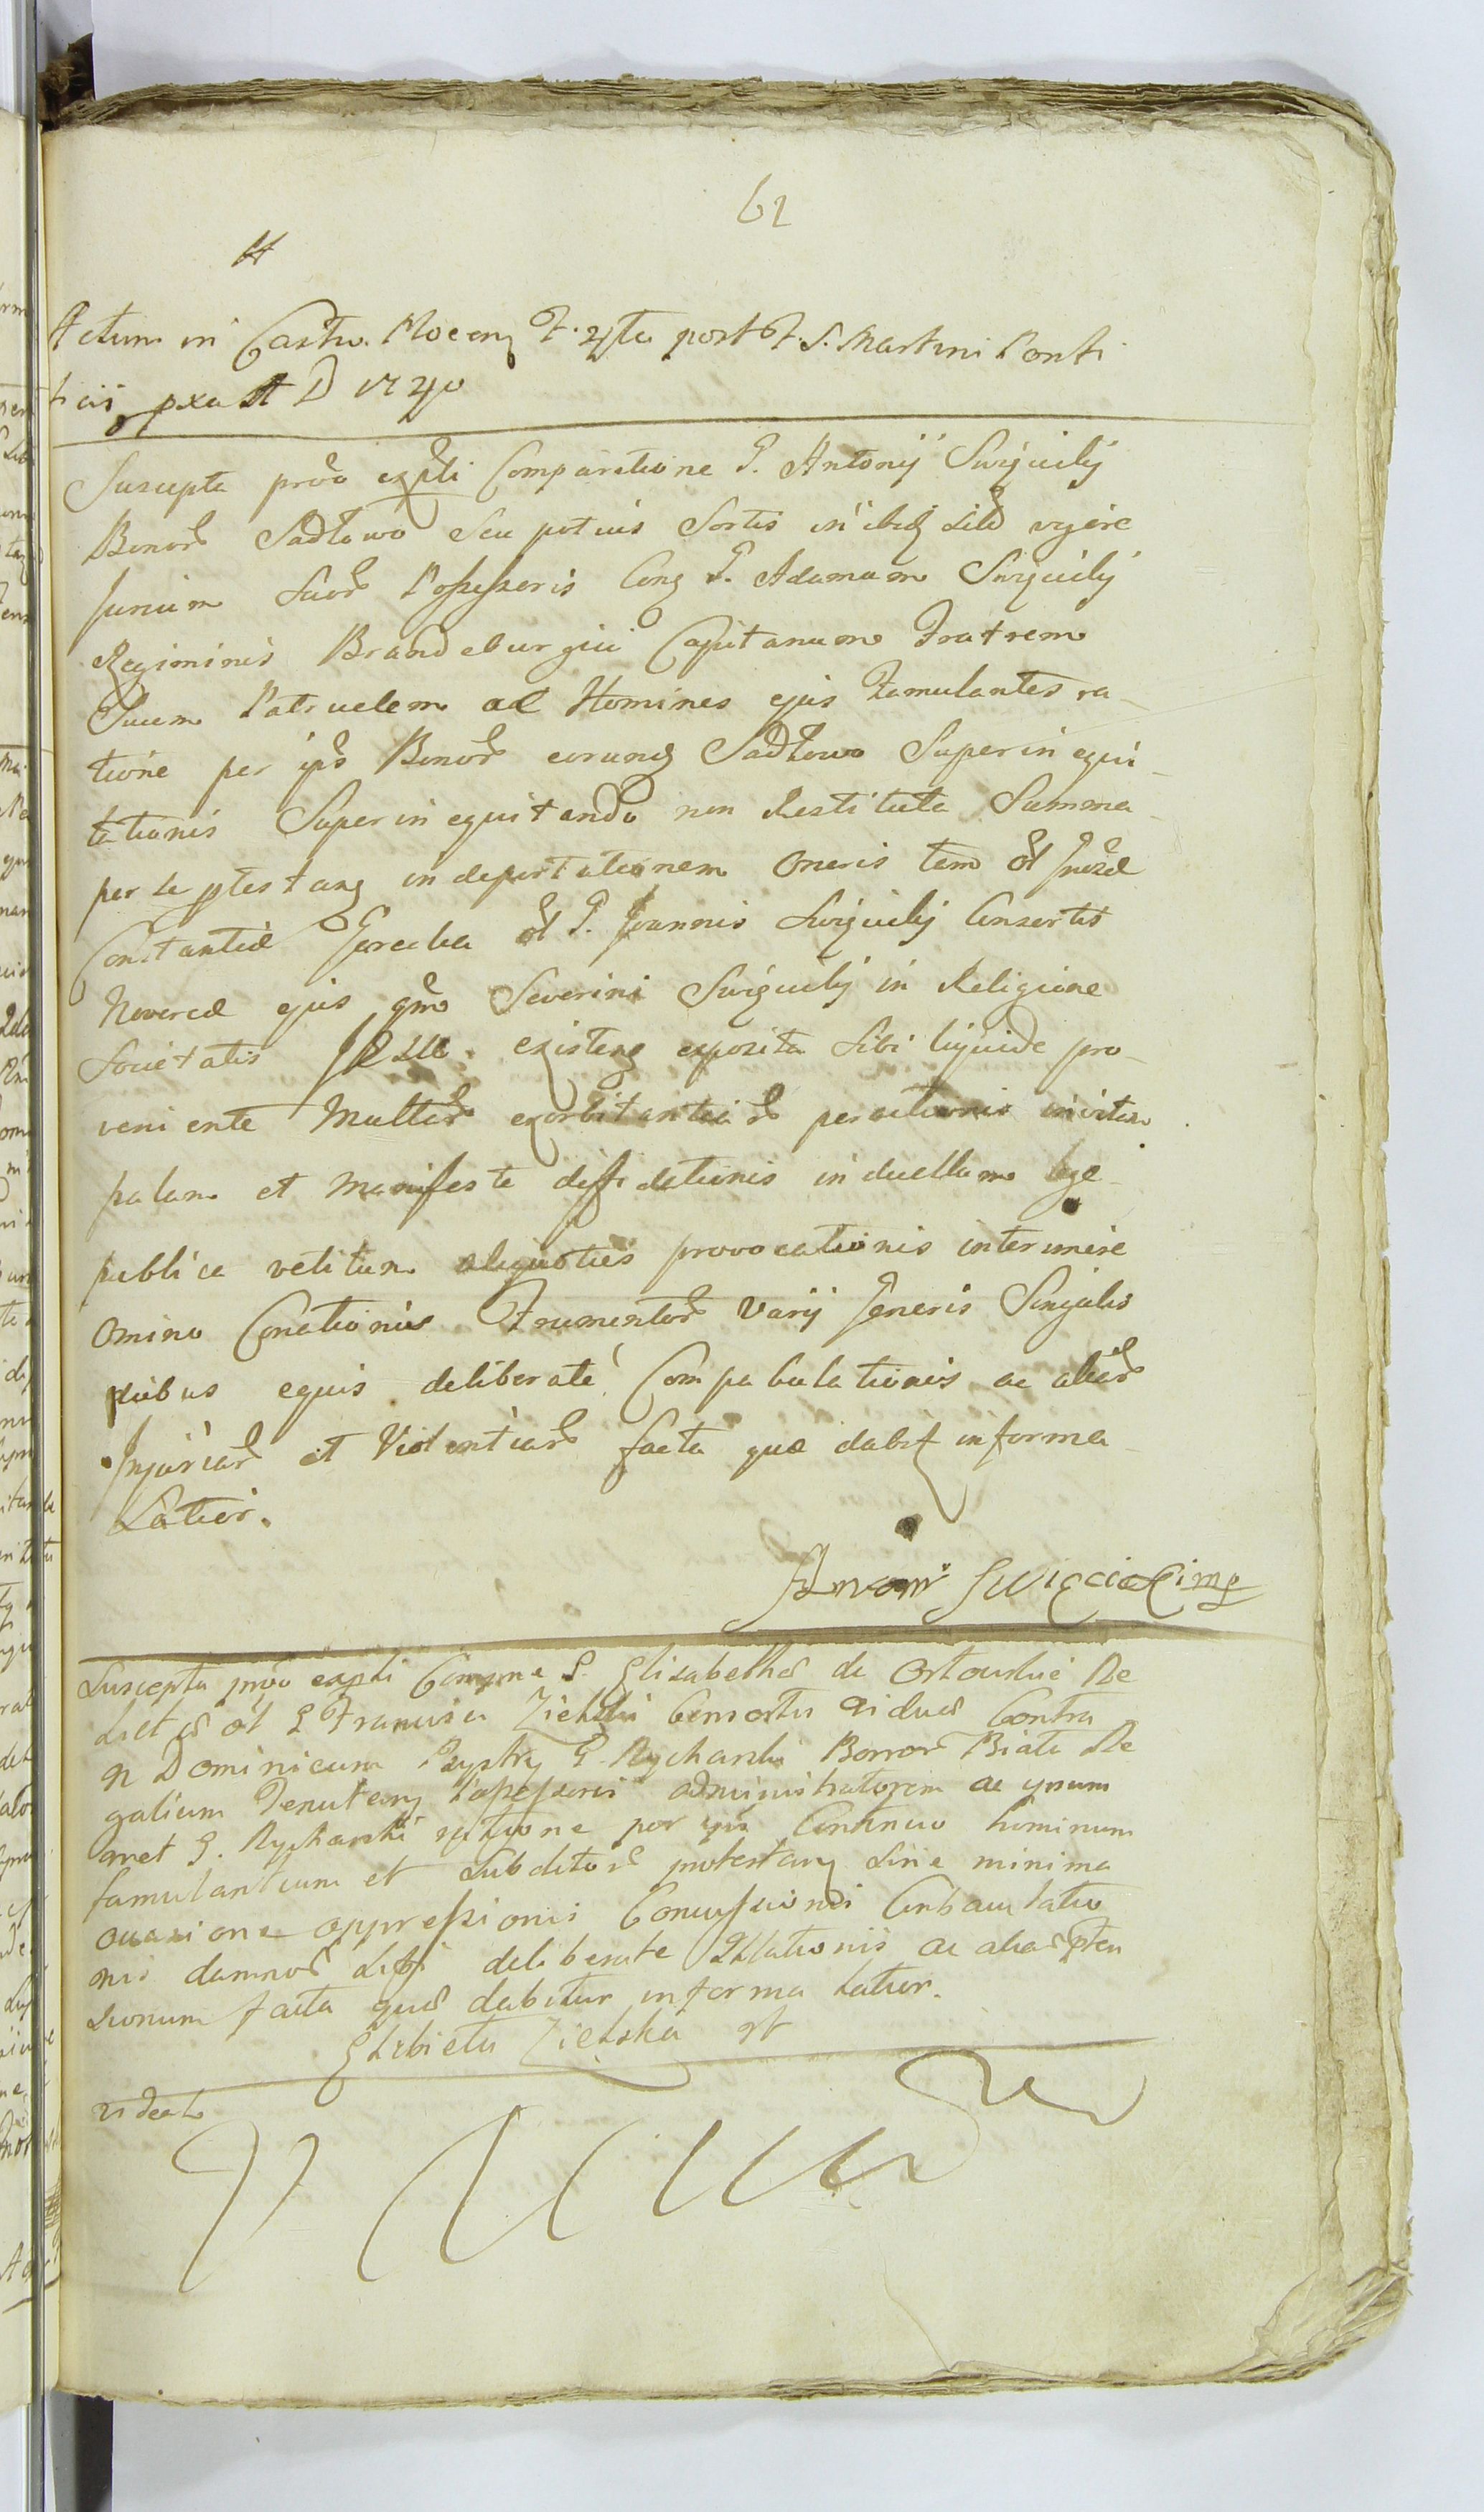 62
Actum in Castro Plocen F. 4ta post F. S. Martini Ponti
ficis pxa A D 1740
Suscepta prva expti Comparatione G. Antonij Swięcicki
Bonor Sadłowo Seu potius Sortis in ibid Sitt
Suor Possessoris Cong G. Adamum Swięcicki
Regiminis Brandeburgici Capitanum Fratrem
Suum Patruelem ac Homines ejus Famulantes ra-
tione per ips Bonor eorund Sadłowo Superinequi-
tationis Superinequitando non Restituta Summa
per se ptestang in deportationem Oneris tam ol
Constantiæ Jarecka ol G. Joannis Swięcicki Consortis
Novercæ ejus qm Severini Swięcicki in Religione
Societatis JESU existeng exposita Sibi liquide pro-
veniente Multar exorbitantiar peractionis
palam et Manifeste diffidationis in duellum lege
publica vetitum aliquoties provocationis interimere
omino Conationis Frumentor Varij Generis Singulis
diebus equis deliberate Compabulationis ac aliar
Injuriar et Violentiar facta quæ dabit in forma
Latior.
Antoni Swięcicki mp
Suscepta prva expti Compne G. Elisabethæ de Ortowskie Re
lictæ ol G Francisci Zielski Consortis Viduæ Contra
N Dominicum G. Rycharski Bonor Biała Re
galium Tenuteny Possessoris administratorem ac ipsum
met G. Rycharski ratione per ips Continuo hominum
famulantium et Subditor protestang Sine minima
occasione oppressionis Concussionis
onis damnor Sibi deliberate Illationis ac aliar pten
sionum facta quæ dabitur in forma latior.
Elzbieta Zielska
videat